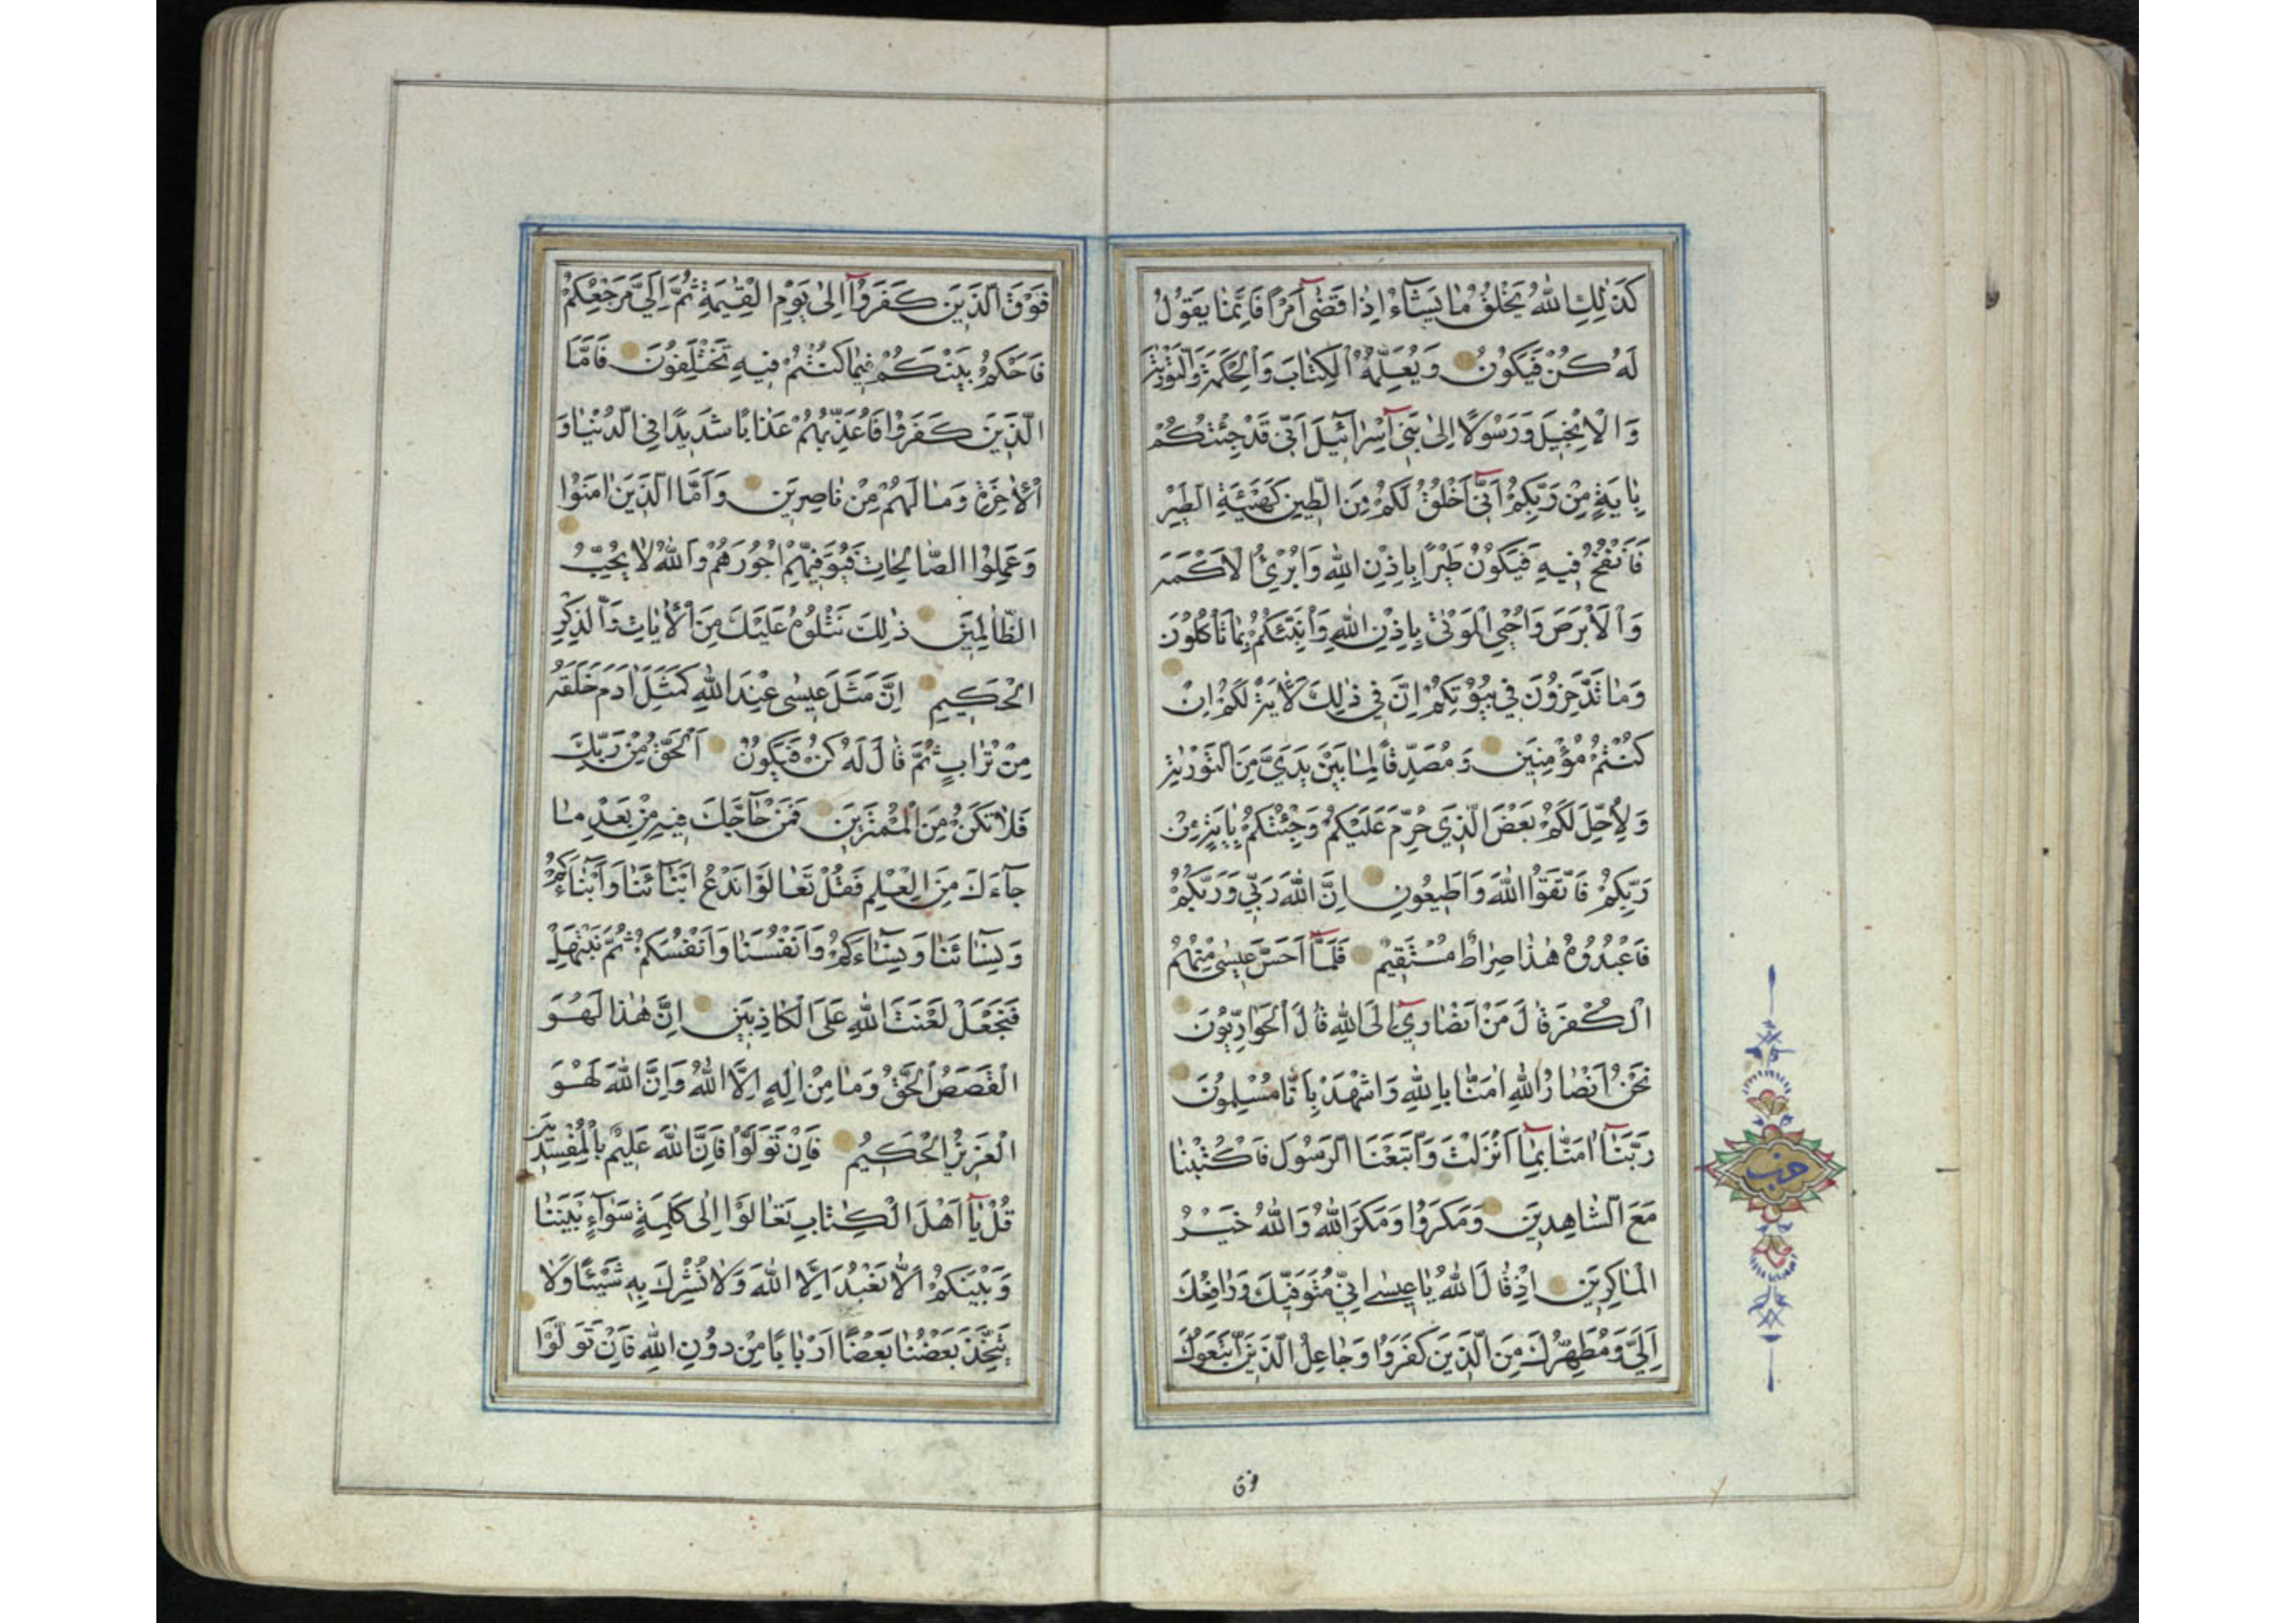 كَذٰلِكِ اللهُ يَخْلُقُ مٰا يَشٰٓاءُ اِذٰا قَضٰىٓ اَمْرًا فَاِنَّمٰا يَقُوْلُ
لَهُ كُنْ فَيَكُوْنُ وَيُعَلِّمُهُ الْكِتٰابَ وَالْحِكْمَةَ وَالتَّوْرٰيةَ
وَالْاِنْجِيْلَ وَرَسُوْلًا اِلىٰ بَنِيٓ اِسْرٰٓائِيْلَ اَنِّي قَدْ جِئْتُكُمْ
بِاٰيَةٍ مِنْ رَبِّكُمْ اَنِّيٓ اَخْلُقُ لَكُمْ مِنَ الطِّيْنِ كَهَيْئَةِ الطَّيْرِ
فَاَنْفُخُ فِيهِ فَيَكُوْنُ طَيْرًا بِاِذْنِ اللهِ وَاُبْرِئُ الْاَكْمَهَ
وَالْاَبْرَصَ وَاُحْيِي الْمَوْتىٰ بِاِذْنِ اللهِ وَاُنَبِّئُكُمْ بِمٰا تَأْكُلُوْنَ
وَمٰا تَدَّخِرُوْنَ فِي بُيُوْتِكُمْ اِنَّ فِي ذٰلِكَ لَاٰيَةً لَكُمْ اِنْ
كُنْتُمْ مُؤْمِنِيْنَ وَمُصَدِّقًا لِمٰا بَيْنَ يَدَيَّ مِنَ التَّوْرٰيةِ
وَلِاُحِلَّ لَكُمْ بَعْضَ الَّذِي حُرِّمَ عَلَيْكُمْ وَجِئْتُكُمْ بِاٰيَةٍ مِنْ
رَبِّكُمْ فَاتَّقُوا اللهَ وَاَطِيعُونِ اِنَّ اللهَ رَبِّي وَرَبُّكُمْ
فَاعْبُدُوْهُ هٰذٰا صِرٰاطٌ مُسْتَقِيْمٌ فَلَمَّٓا اَحَسَّ عِيسٰى مِنْهُمُ
الْكُفْرَ قٰالَ مَنْ اَنْصٰارِيٓ اِلَى اللهِ قٰالَ الْحَوٰارِيُّوْنَ
نَحْنُ اَنْصٰارُ اللهِ اٰمَنّٰا بِاللهِ وَاشْهَدْ بِاَنّٰا مُسْلِمُوْنَ
رَبَّنٰٓا اٰمَنّٰا بِمٰٓا اَنْزَلْتَ وَاتَّبَعْنَا الرَّسُوْلَ فَاكْتُبْنٰا
مَعَ الشّٰاهِدِيْنَ وَمَكَرُوْا وَمَكَرَ اللهُ وَاللهُ خَيْرُ
الْمٰاكِرِيْنَ اِذْ قٰالَ اللهُ يٰا عِيسٰى اِنِّي مُتَوَفِّيْكَ وَرٰافِعُكَ
اِلَيَّ وَمُطَهِّرُكَ مِنَ الَّذِيْنَ كَفَرُوْا وَجٰاعِلُ الَّذِيْنَ اتَّبَعُوْكَ
حزب
فوق
فَوْقَ الَّذِيْنَ كَفَرُوْٓا اِلىٰ يَوْمِ الْقِيٰمَةِ ثُمَّ اِلَيَّ مَرْجِعُكُمْ
فَاَحْكُمُ بَيْنَكُمْ فِيمٰا كُنْتُمْ فِيهِ تَخْتَلِفُوْنَ فَاَمَّا
الَّذِيْنَ كَفَرُوْا فَاُعَذِّبُهُمْ عَذٰابًا شَدِيْدًا فِي الدُّنْيٰا وَ
الْاٰخِرَةِ وَمٰا لَهُمْ مِنْ نٰاصِرِيْنَ وَاَمَّا الَّذِيْنَ اٰمَنُوْا
وَعَمِلُوا الصّٰالِحٰاتِ فَيُوَفِّيْهِمْ اُجُوْرَهُمْ وَاللهُ لٰا يُحِبُّ
الظّٰالِمِيْنَ ذٰلِكَ نَتْلُوْهُ عَلَيْكَ مِنَ الْاٰيٰاتِ وَالذِّكْرِ
الْحَكِيْمِ اِنَّ مَثَلَ عِيسٰى عِنْدَ اللهِ كَمَثَلِ اٰدَمَ خَلَقَهُ
مِنْ تُرٰابٍ ثُمَّ قٰالَ لَهُ كُنْ فَيَكُوْنُ اَلْحَقُّ مِنْ رَبِّكَ
فَلٰا تَكُنْ مِنَ الْمُمْتَرِيْنَ فَمَنْ حٰٓاجَّكَ فِيهِ مِنْ بَعْدِ مٰا
جٰٓاءَكَ مِنَ الْعِلْمِ فَقُلْ تَعٰالَوْا نَدْعُ اَبْنٰٓائَنٰا وَاَبْنٰٓاءَكُمْ
وَنِسٰٓائَنٰا وَنِسٰٓاءَكُمْ وَاَنْفُسَنٰا وَاَنْفُسَكُمْ ثُمَّ نَبْتَهِلْ
فَنَجْعَلْ لَعْنَتَ اللهِ عَلَى الْكٰاذِبِيْنَ اِنَّ هٰذٰا لَهُوَ
الْقَصَصُ الْحَقُّ وَمٰا مِنْ اِلٰهٍ اِلَّا اللهُ وَاِنَّ اللهَ لَهُوَ
الْعَزِيْزُ الْحَكِيْمُ فَاِنْ تَوَلَّوْا فَاِنَّ اللهَ عَلِيْمٌ بِالْمُفْسِدِيْنَ
قُلْ يٰٓا اَهْلَ الْكِتٰابِ تَعٰالَوْا اِلىٰ كَلِمَةٍ سَوٰٓاءٍ بَيْنَنٰا
وَبَيْنَكُمْ اَلّٰا نَعْبُدَ اِلَّا اللهَ وَلٰا نُشْرِكَ بِهِ شَيْئًا وَلٰا
يَتَّخِذَ بَعْضُنٰا بَعْضًا اَرْبٰابًا مِنْ دُوْنِ اللهِ فَاِنْ تَوَلَّوْا